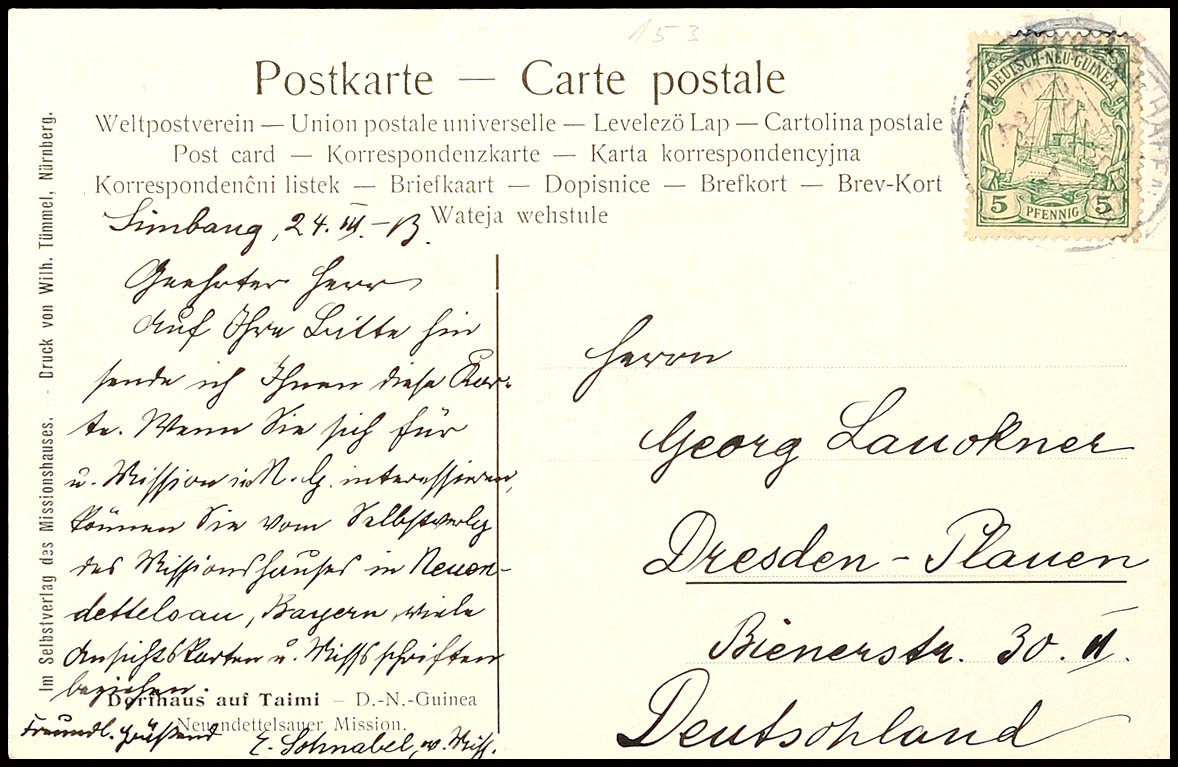 153
Postkarte — Carte postale
Weltpostverein — Union postale universelle — Levelezö Lap — Cartolina postale
Post card — Korrespondenzkarte — Karta korrespondencyjna
Korrespondenčni listek — Briefkaart — Dopisnice — Brefkort — Brev-Kort
Wateja wehstule
DEUTSCH-NEU-GUINEA
5 PFENNIG 5
Im Selbstverlag des Missionshauses. - Druck von Wilh. Tümmel, Nürnberg.
Simbang, 24. III. - 13.
Geehrter Herr
Auf Ihre Bitte hin
sende ich Ihnen diese Kar-
te. Wenn Sie sich für
u. Mission in N. G. interessieren,
können Sie vom Selbstverlg
des Missionshauses in Neuen-
dettelsau, Bayern, viele
Ansichtskarten u. Missschriften
beziehen.
Freundl. grüßend
E. Schnabel, w. Miss.
Dorfhaus auf Taimi — D.-N.-Guinea
Neuendettelsauer Mission.
Herrn
Georg Lauckner
Dresden - Plauen
Bienerstr. 30. II.
Deutschland